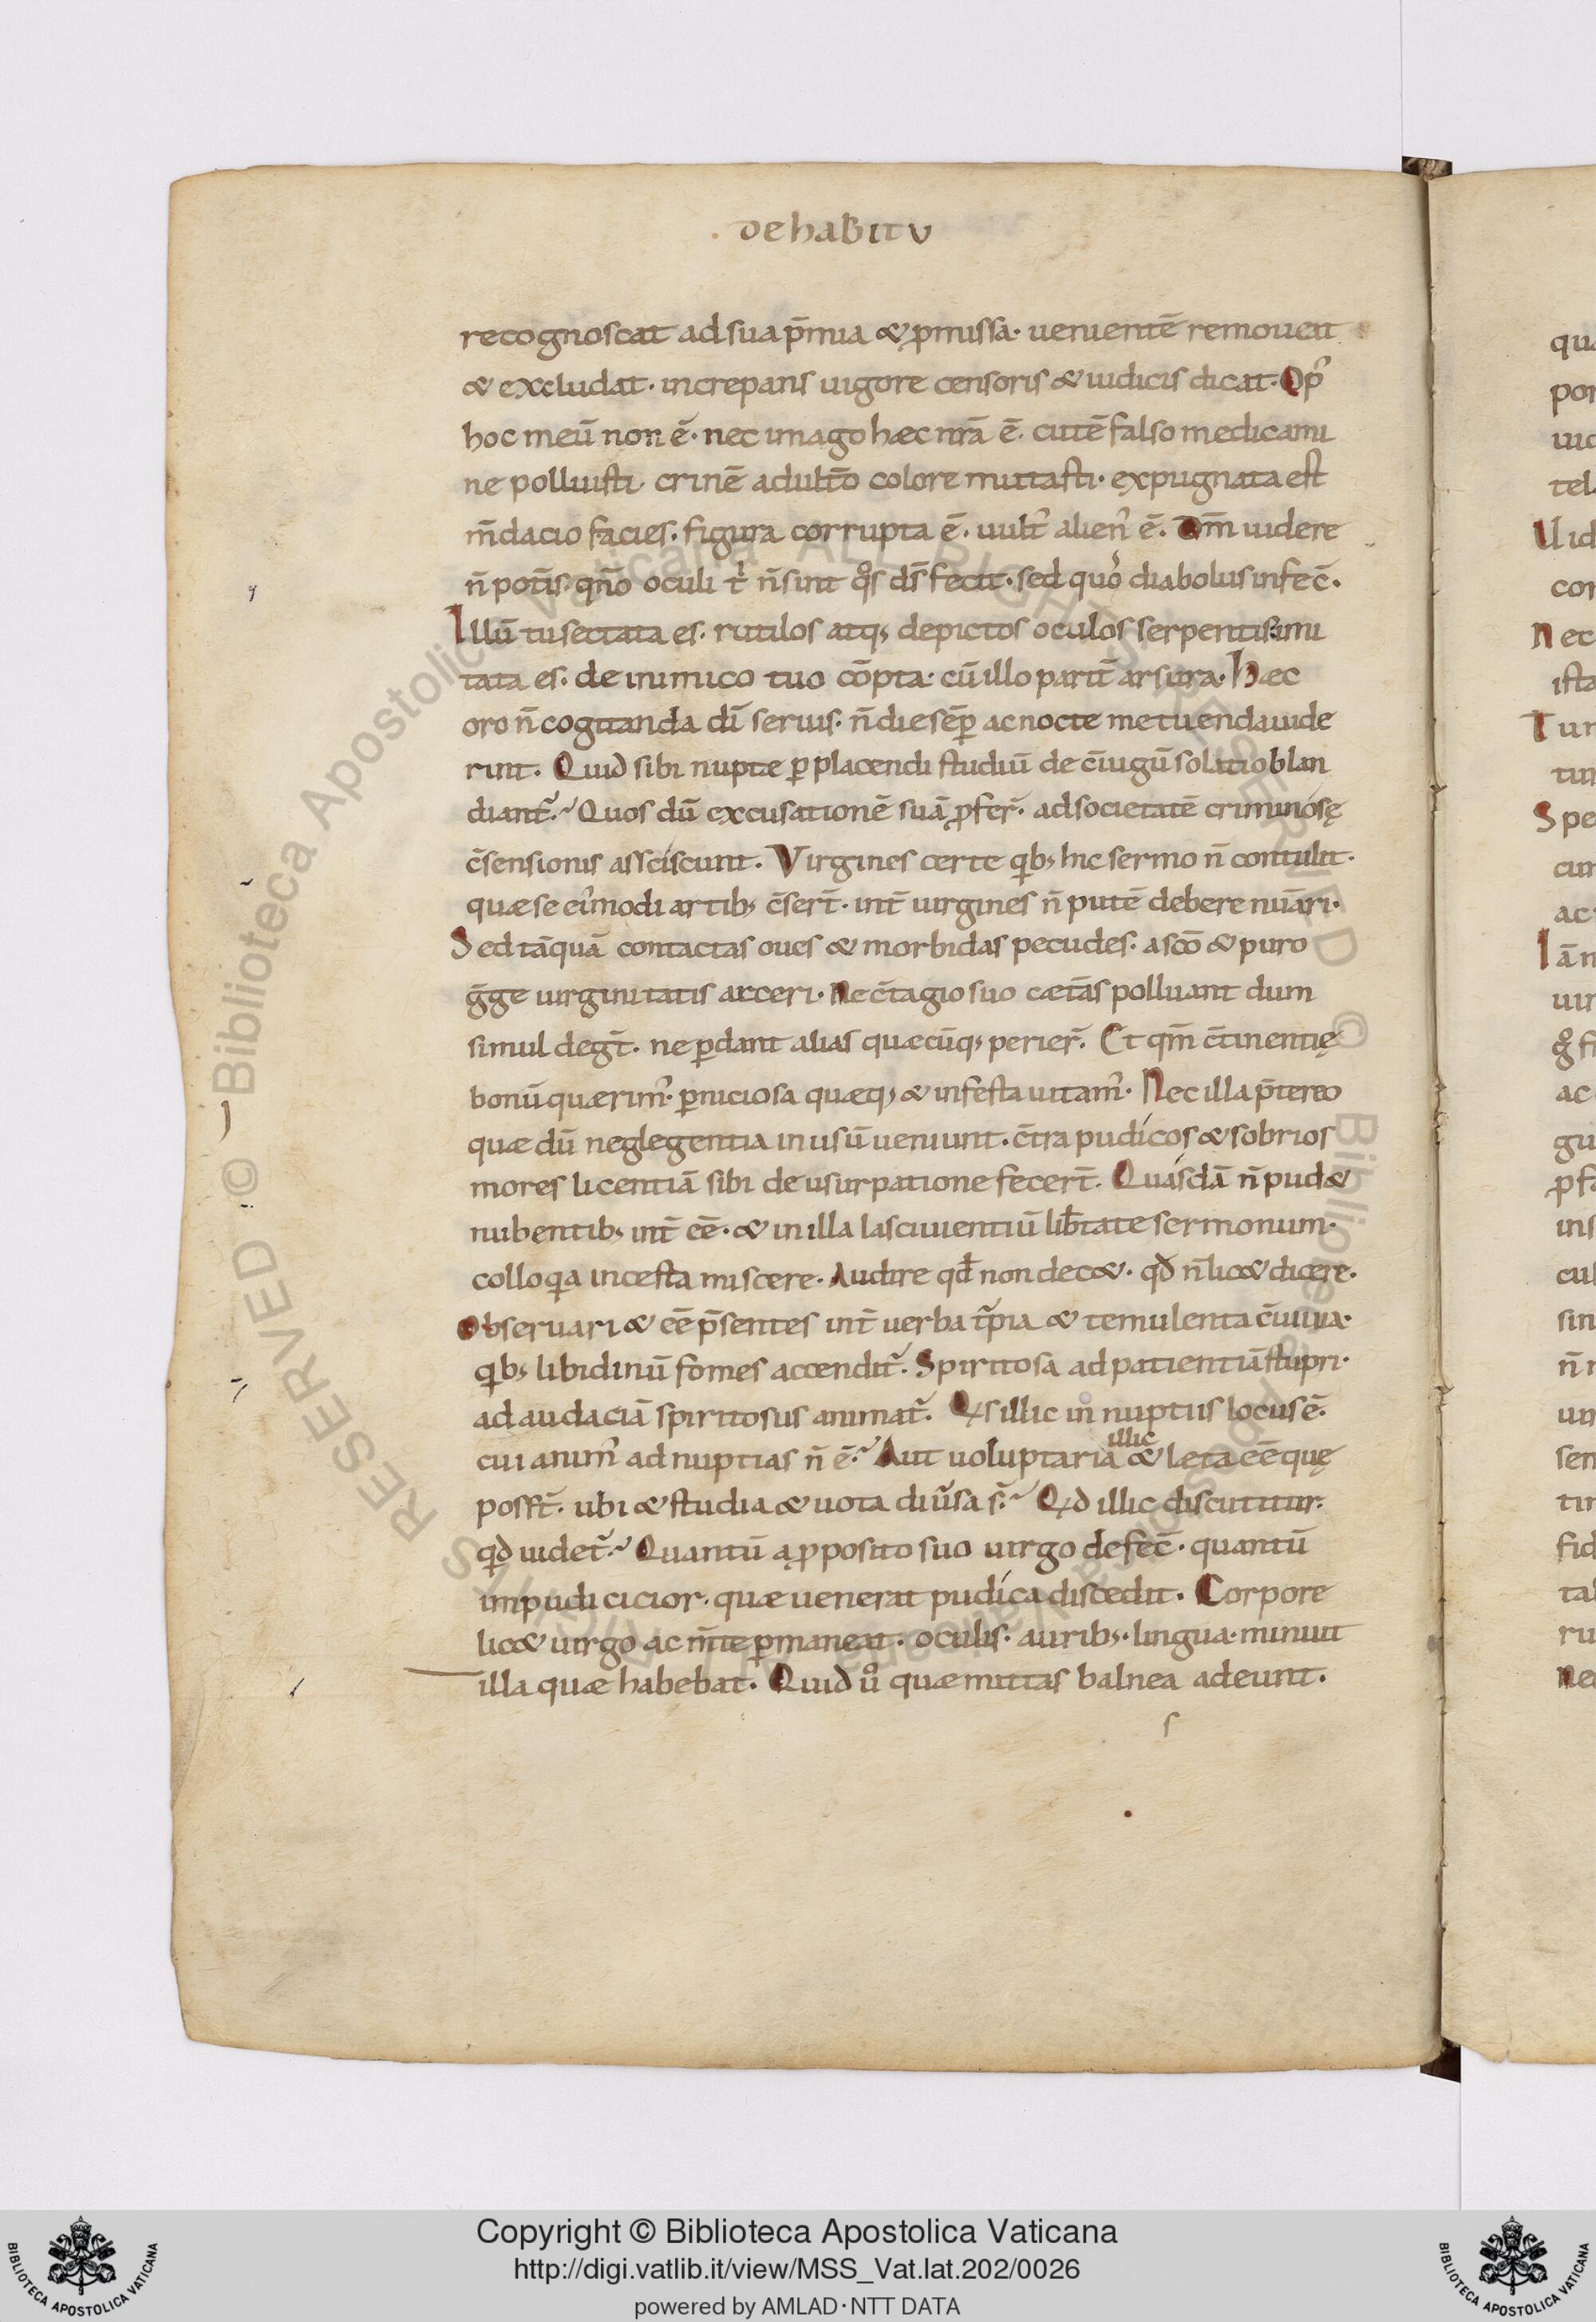 de habitu
recognoscat ad sua p̄mia & ꝓmissa· uenientē remoueat
& excludat· increpans uigore censoris & iudicis dicat· Op᾿
hoc meū non ē· nec imago hæc nr̄a ē· cutē falso medicami
ne polluisti· crinē adult̄o colore mutasti· expugnata est
m̄dacio facies· figura corrupta ē· uult᾿ alien᾿ ē· Dm̄ uidere
n̄ pot̄is· qn̄o oculi t᾿ n̄ sint qͦs ds̄ fecit· sed quoͦ diabolus infec̄·
Illū tu sectata es· rutilos atq; depictos oculos serpentis imi
tata es· de inimico tuo cōpta· cū illo parit̄ arsura· Hæc
oro n̄ cogitanda dī seruis· n̄ die sēꝑ ac nocte metuenda uide
rint· Quid sibi nuptæ ꝑ placendi studiū de c̄iugū solatio blan
diant᷑· Quos dū excusationē suā ꝓfer̄· ad societatē criminosę
c̄sensionis assciscunt· Virgines certe qib; hic sermo n̄ contulit·
quæ se ei᾿modi artib; c̄sert̄· int̄ uirgines n̄ putē debere nūari·
Sed tāquā contactas oues & morbidas pecudes· a scō & puro
ḡge uirginitatis arceri· Ne c̄tagio suo cæt̄as polluant dum
simul degt̄· ne ꝑdant alias quæcūq; perier̄· Et qm̄ c̄tinentię
bonū quærim᾿· ꝑniciosa quæq; & infesta uitam᾿· Nec illa p̄tereo
quæ dū neglegentia in usū ueniunt· c̄tra pudicos & sobrios
mores licentiā sibi de usurpatione fecert̄· Quasdā n̄ pud&
nubentib; int̄ eē· & in illa lasciuientiū lib̄tate sermonum·
colloqia incesta miscere· Audire qd̄ non dec&· qd̄ n̄ lic& dicere·
Obseruari & eē p̄sentes int̄ uerba t᷑pia & temulenta c̄iuiuia·
qib; libidinū fomes accendit᷑· Sponsa ad patientiā stupri·
ad audaciā sponsus animat᷑· Qis illic in nuptiis locus ē·
cui anim᾿ ad nuptias n̄ ē· Aut uoluptaria illic & leta eē quę
posst̄· ubi & studia & uota diūsa s̄· Qid illic discutitur·
qid uidet᷑· Quantū a ꝓposito suo uirgo defec̄· quantū
impudicicior· quæ uenerat pudica discedit· Corpore
lic& uirgo ac m̄te ꝑmaneat· oculis· aurib;· lingua· minuit
illa quæ habebat· Quid uͦ quæ mittas balnea adeunt·
Copyright © Biblioteca Apostolica Vaticana
http://digi.vatlib.it/view/MSS_Vat.lat.202/0026
powered by AMLAD·NTT DATA